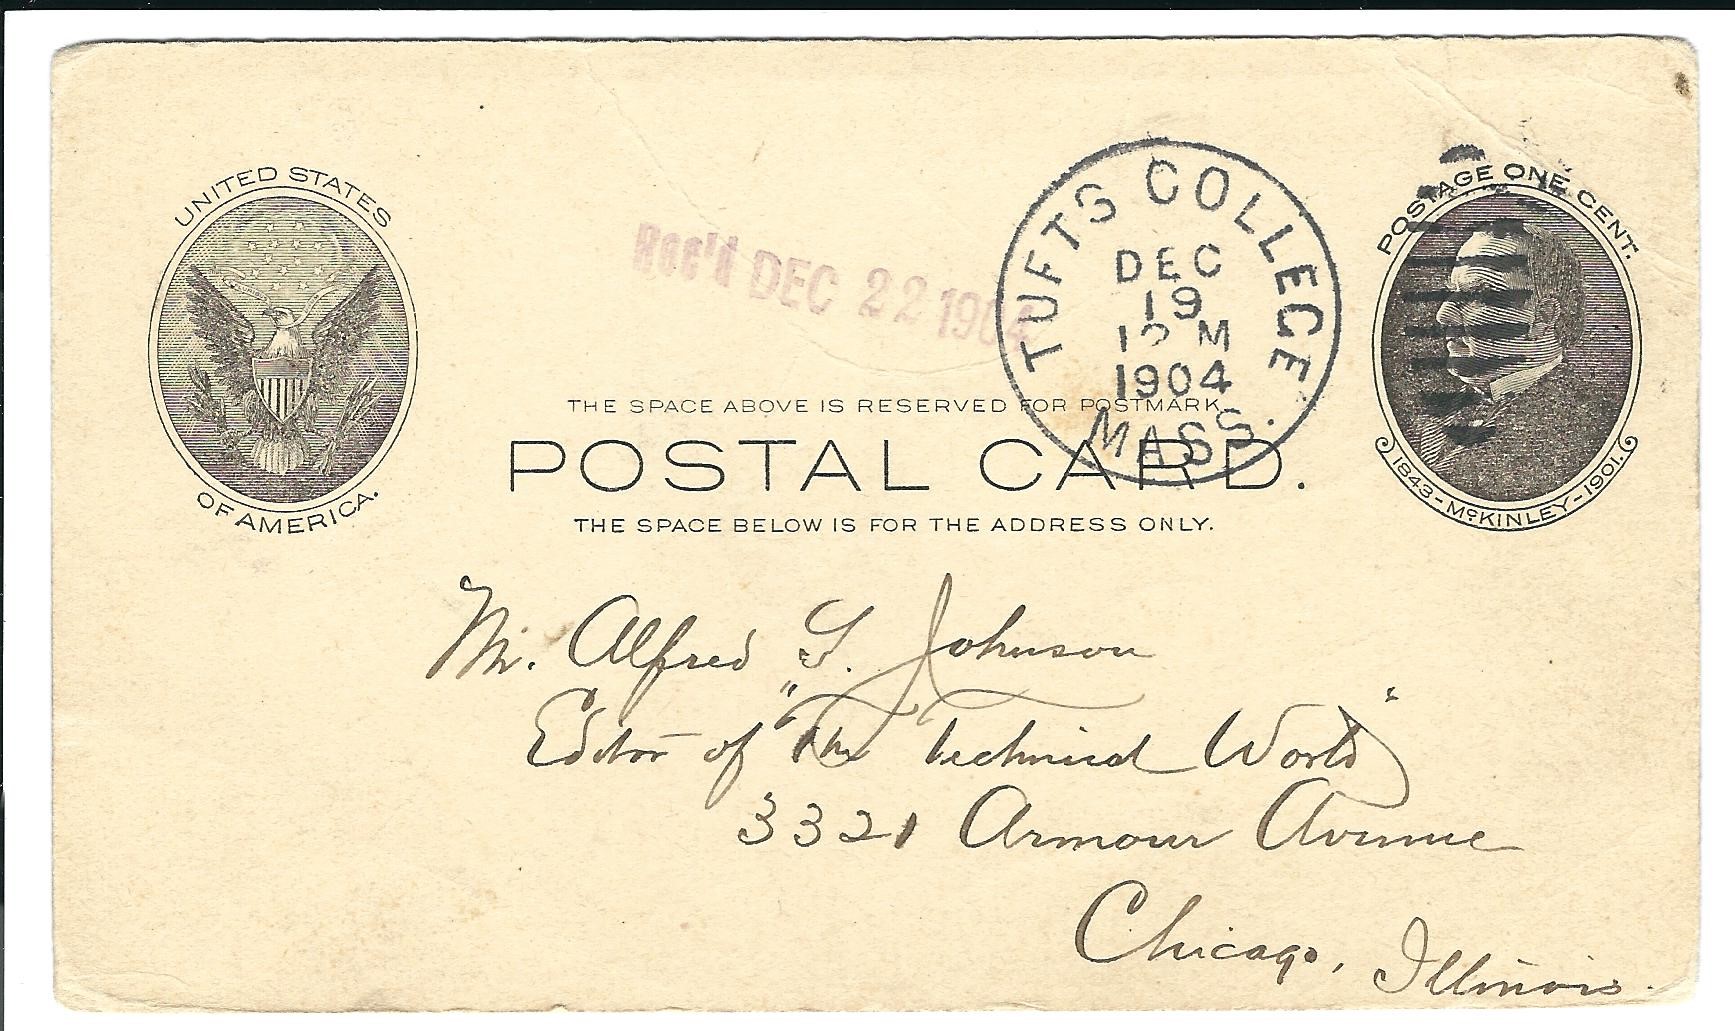 UNITED STATES
OF AMERICA.
Rec'd DEC 22 1904
TUFTS COLLEGE
DEC
19
M
1904
MASS.
POSTAGE ONE CENT.
1843-McKINLEY-1901.
THE SPACE ABOVE IS RESERVED FOR POSTMARK.
POSTAL CARD.
THE SPACE BELOW IS FOR THE ADDRESS ONLY.
Mr. Alfred S. Johnson
Editor of "The Technical World"
3321 Armour Avenue
Chicago, Illinois.